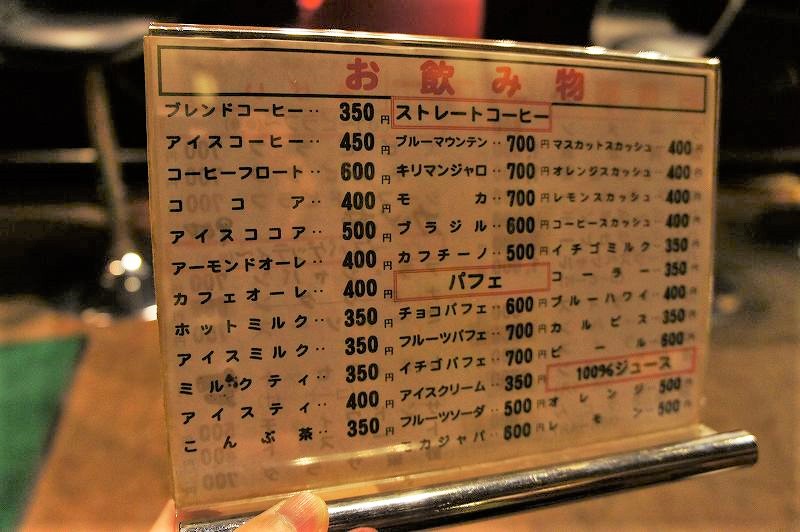 お飲み物
ブレンドコーヒー‥350円
アイスコーヒー‥450円
コーヒーフロート‥600円
ココア‥400円
アイスココア‥500円
アーモンドオーレ‥400円
カフェオーレ‥400円
ホットミルク‥350円
アイスミルク‥350円
ミルクティ‥350円
アイスティ‥400円
こんぶ茶‥350円
ストレートコーヒー
ブルーマウンテン‥700円
キリマンジャロ‥700円
モカ‥700円
ブラジル‥600円
カフチーノ‥500円
パフェ
チョコパフェ‥600円
フルーツパフェ‥700円
イチゴパフェ‥700円
アイスクリーム‥350円
フルーツソーダ‥500円
モカジャバ‥600円
マスカットスカッシュ‥400円
オレンジスカッシュ‥400円
レモンスカッシュ‥400円
コーヒースカッシュ‥400円
イチゴミルク‥350円
コーラー‥350円
ブルーハワイ‥400円
カルピス‥350円
ビール‥600円
100%ジュース
オレンジ‥500円
レモン‥500円